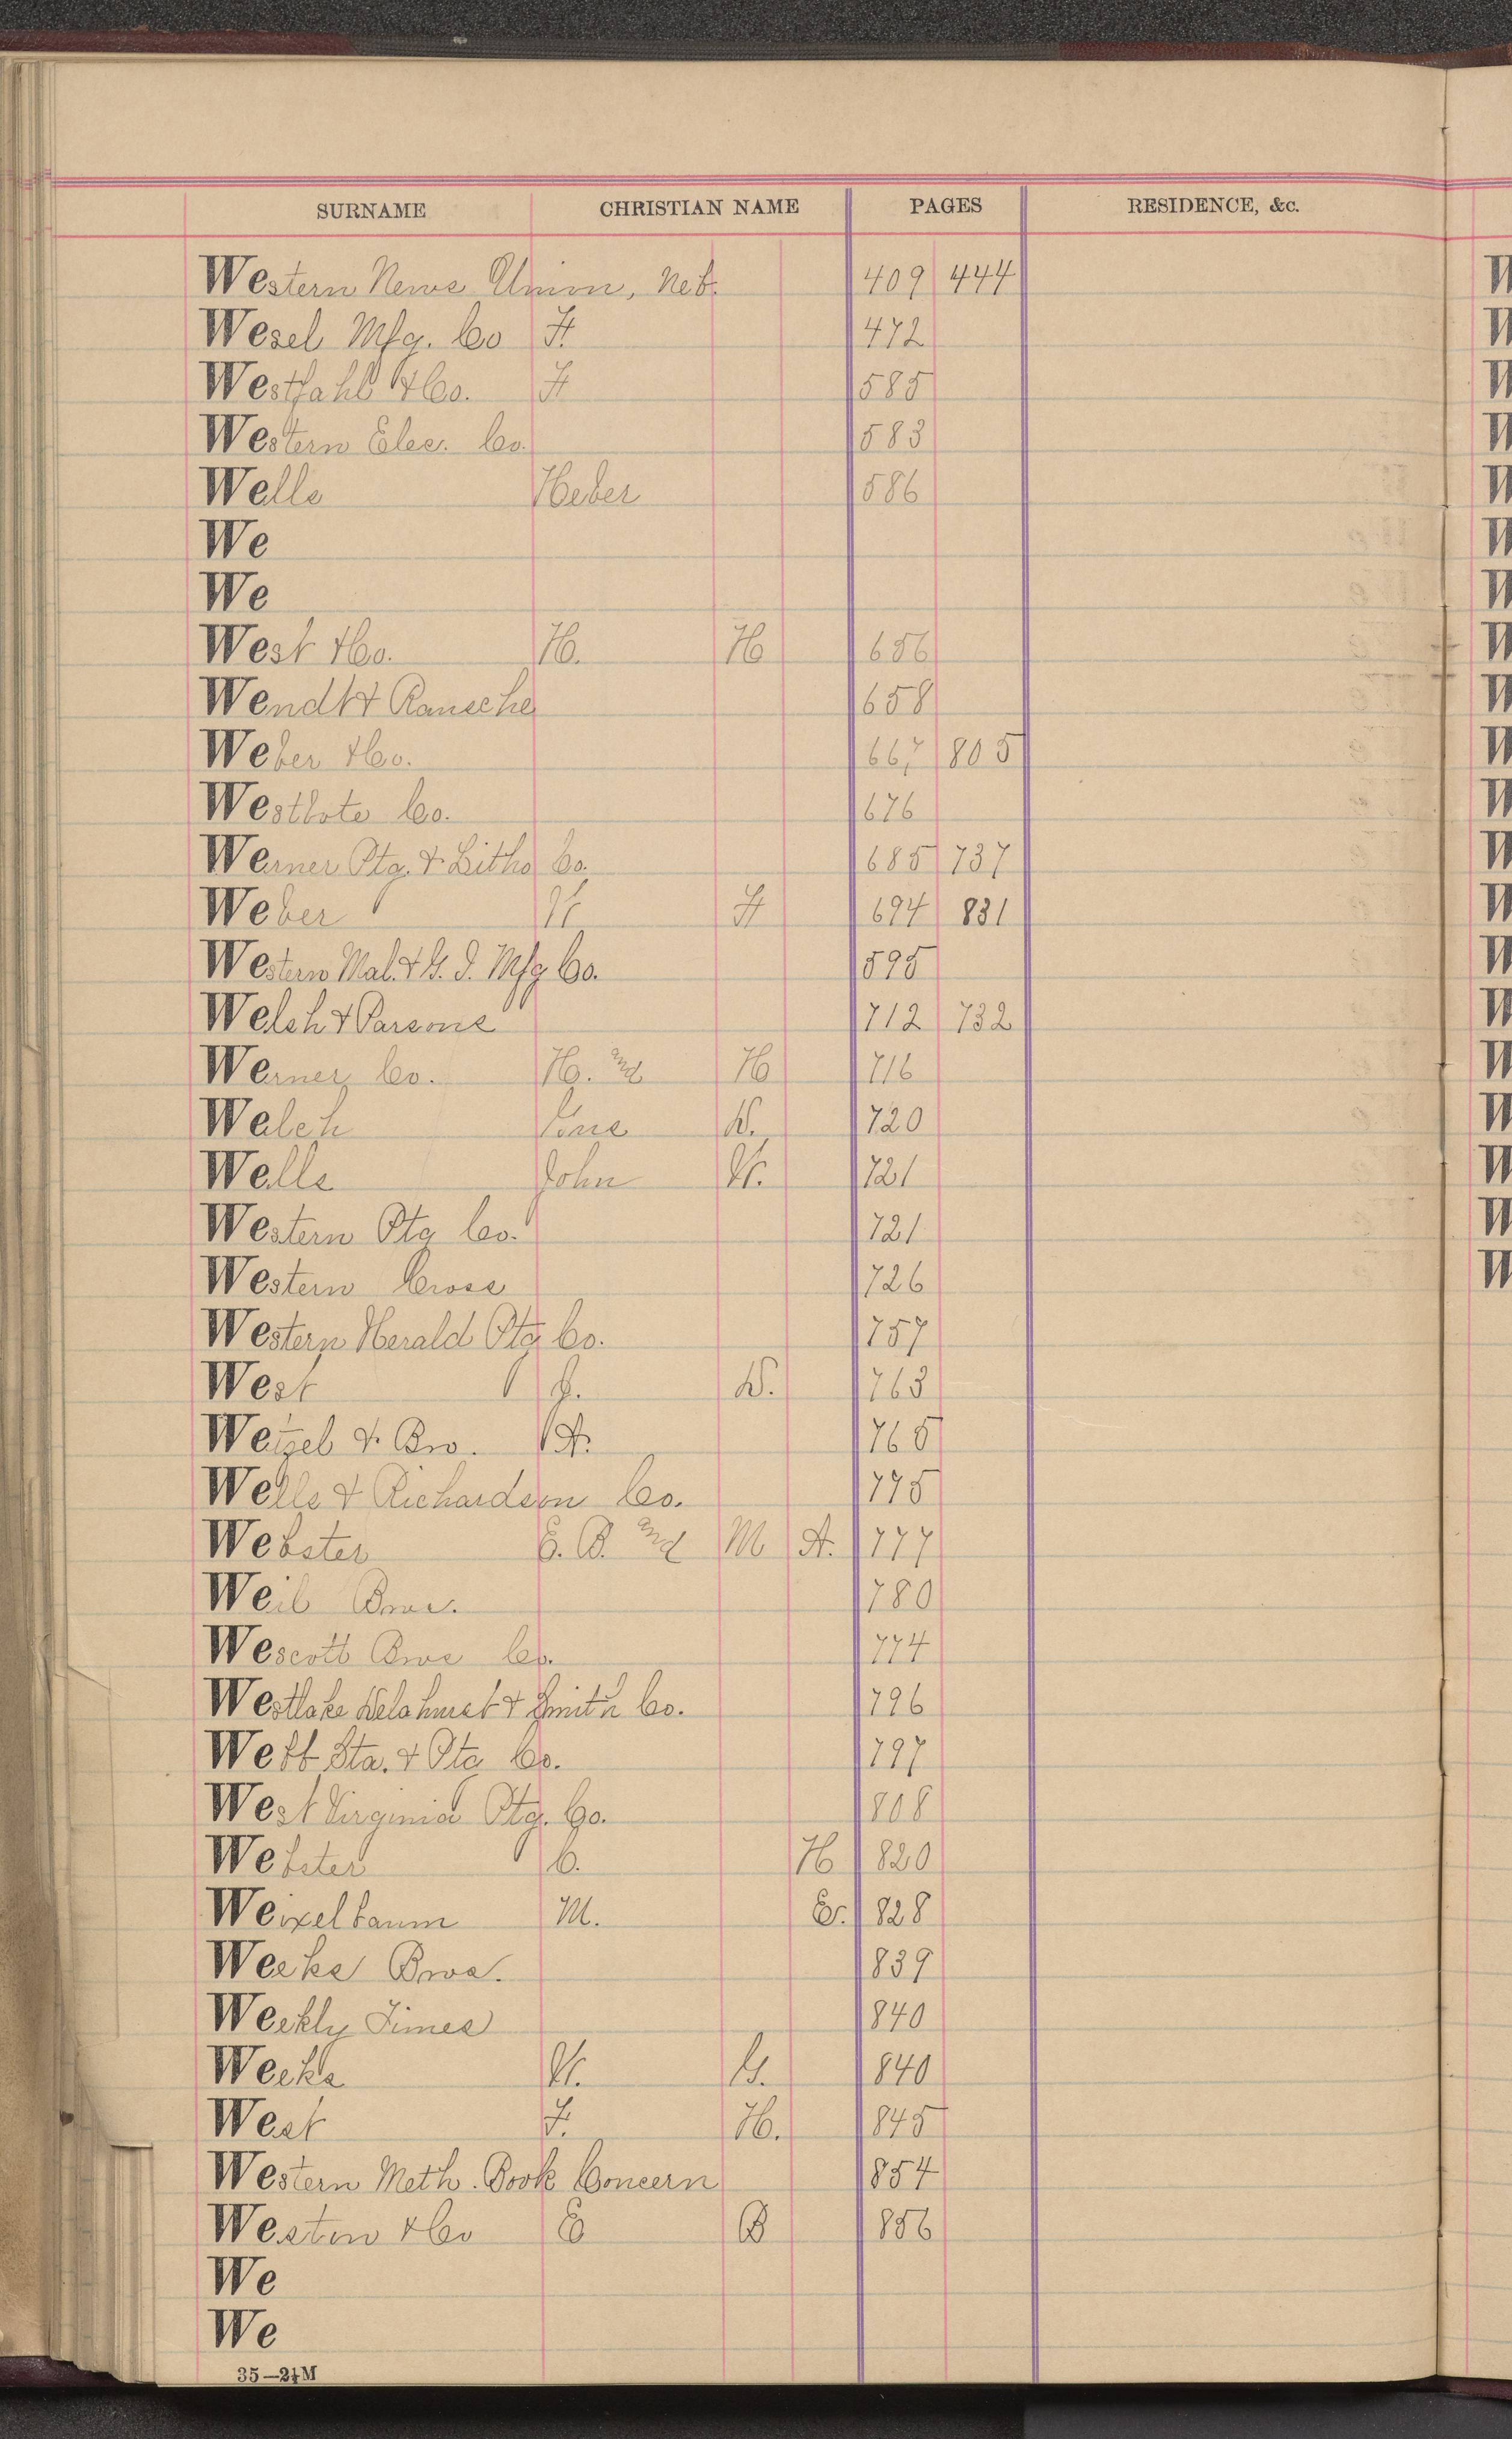 SURNAME CHRISTIAN NAME PAGES RESIDENCE, &c.
Western News Union, Neb. 409 444
Wesel Mfg. Co F 472
Westfahl & Co. F 585
Western Elec. Co. 583
Wells Heber 586
We
We
West & Co. H. H 656
Wendt & Rausche 658
Weber & Co. 667 805
Westbote Co. 676
Werner Ptg. & Litho Co. 685 737
Weber W F 694 831
Western Mal. & G. I. Mfg Co. 595
Welch & Parsons 712 732
Werner Co. H. H 716
Welch D. 720
Wells John W. 721
Western Ptg Co. 721
Western Cross 726
Western Herald Ptg Co. 757
West J. D. 763
Wetzel & Bro. A. 765
Wells & Richardson Co. 775
Webster C. B. and M A. 777
Weil Bros. 780
Wescott Bros Co. 774
Westlake & Smith Co. 796
Webb Sta. & Ptg Co. 797
West Virginia Ptg. Co. 808
Webster C. H 820
Weixelbaum M. E. 828
Weeks Bros. 839
Weekly Times 840
Weeks W. G. 840
West F. H. 845
Western Meth. Book Concern 854
Weston & Co E B 856
We
We
35—2½M